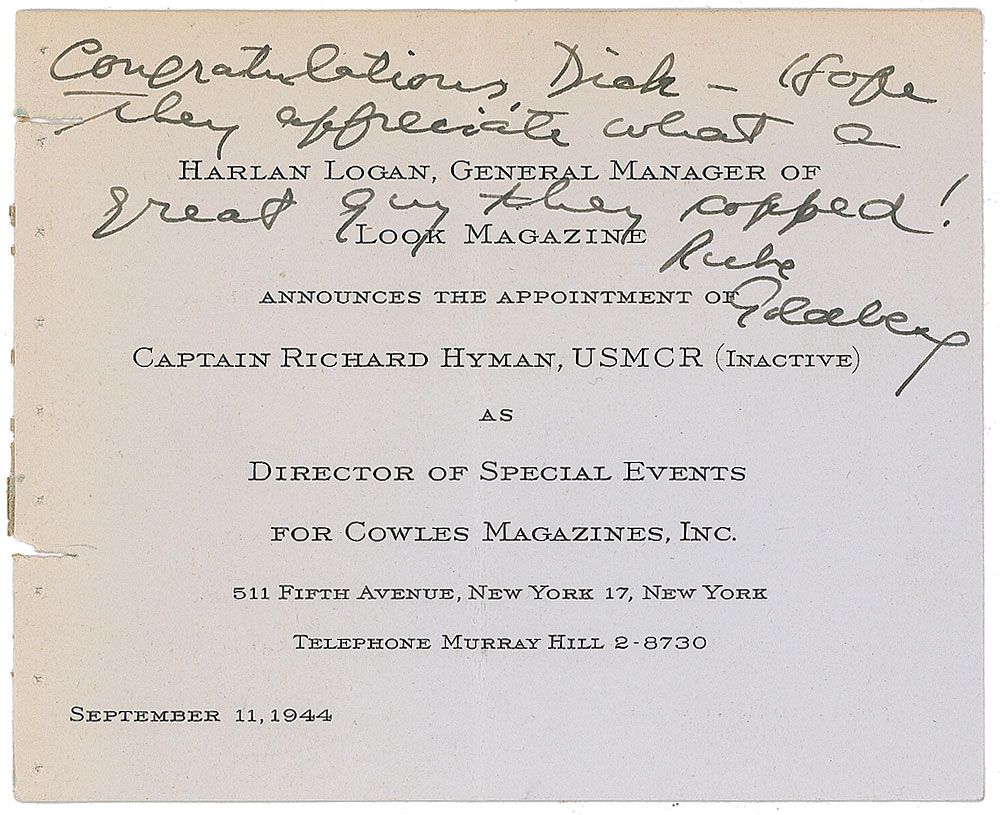 Congratulations Dick – Hope
they appreciate what a
HARLAN LOGAN, GENERAL MANAGER OF
great guy they copped!
LOOK MAGAZINE
Rube
Goldberg
ANNOUNCES THE APPOINTMENT OF
CAPTAIN RICHARD HYMAN, USMCR (INACTIVE)
AS
DIRECTOR OF SPECIAL EVENTS
FOR COWLES MAGAZINES, INC.
511 FIFTH AVENUE, NEW YORK 17, NEW YORK
TELEPHONE MURRAY HILL 2-8730
SEPTEMBER 11, 1944